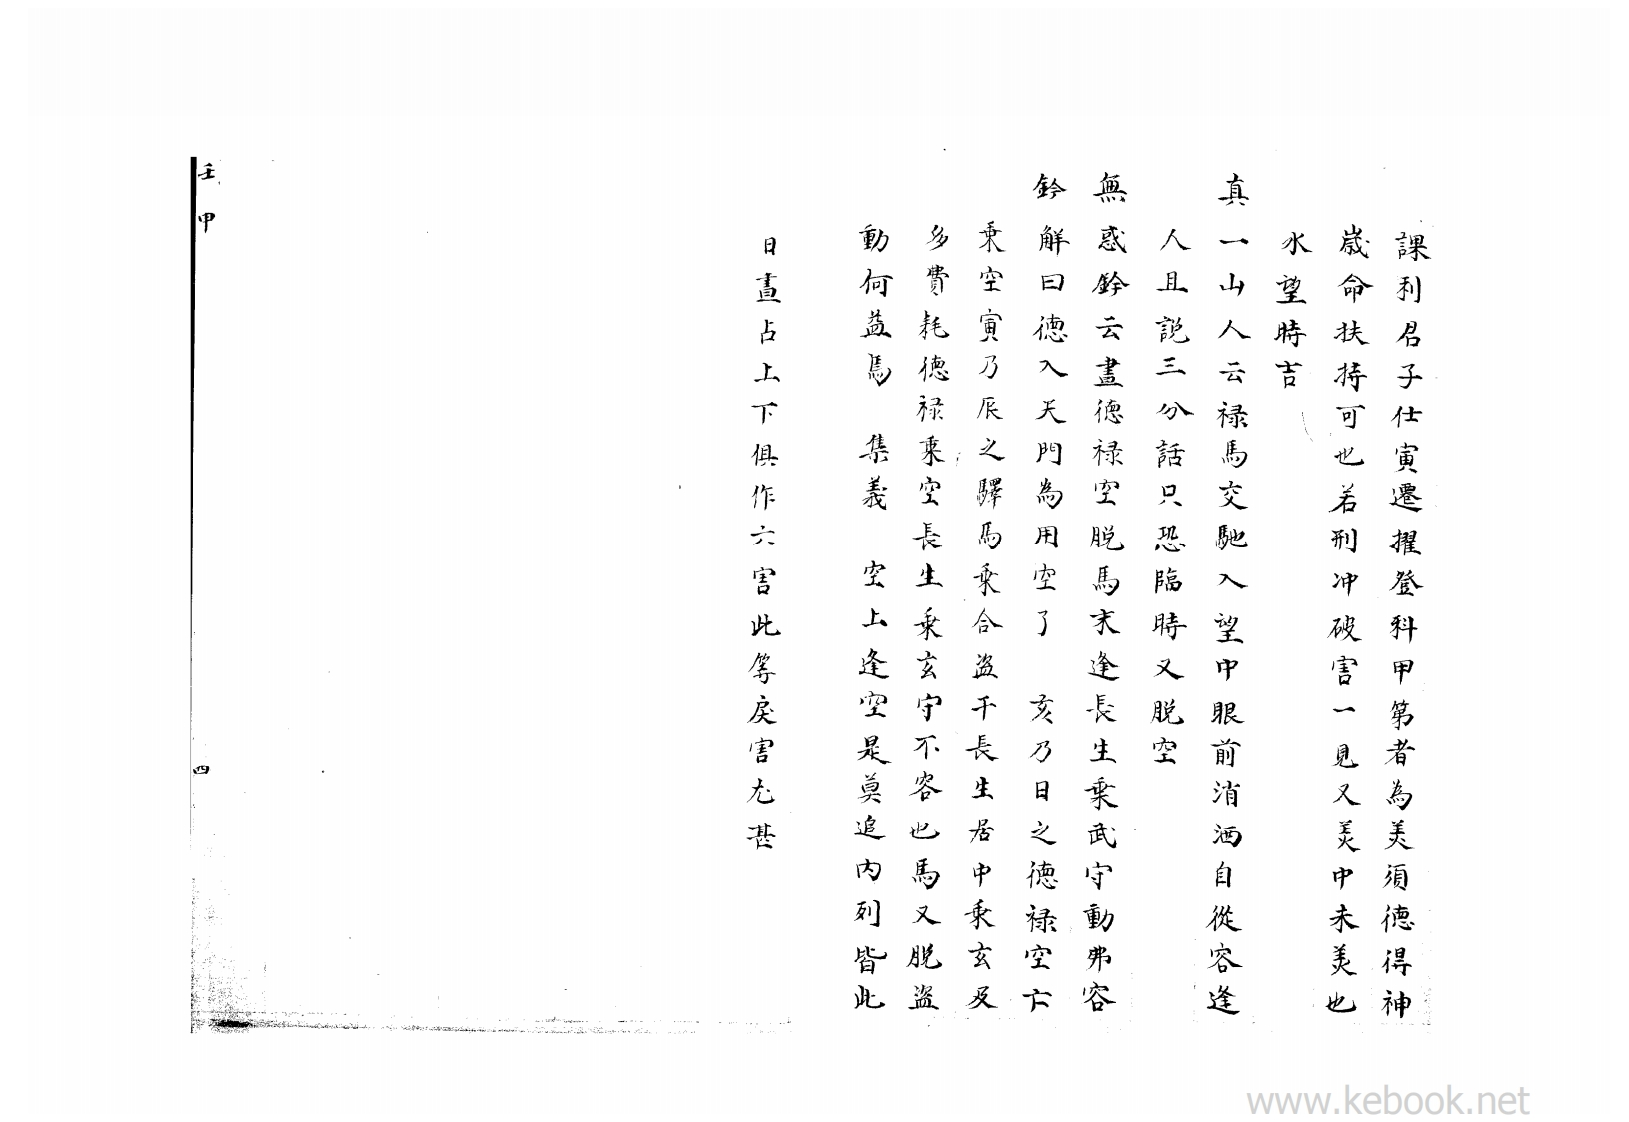 課利君子仕寅遷擢登科甲第者為美須德得神
歲命扶持可也若刑冲破害一見又美中未美也
水望時吉
真一山人云禄馬交馳入望中眼前消洒自從容逢
人且説三分話只恐臨時又脱空
無惑鈐云晝德禄空脱馬末逢長生乗武守動弗容
鈐解曰德入天門為用空了　亥乃日之德禄空亡
乗空寅乃辰之驛馬乗合盗干長生居中乗玄及
多費耗德禄乗空長生乗玄守不容也馬又脱盗
動何益焉　集義　空上逢空是莫追内列皆此
日晝占上下俱作六害此等戾害尤甚
壬甲　四
www.kebook.net